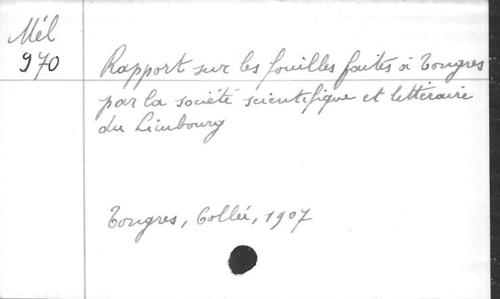 Mél
970
Rapport sur les fouilles faites à Tongres
par la société scientifique et littéraire
du Limbourg
Tongres, Collée, 1907